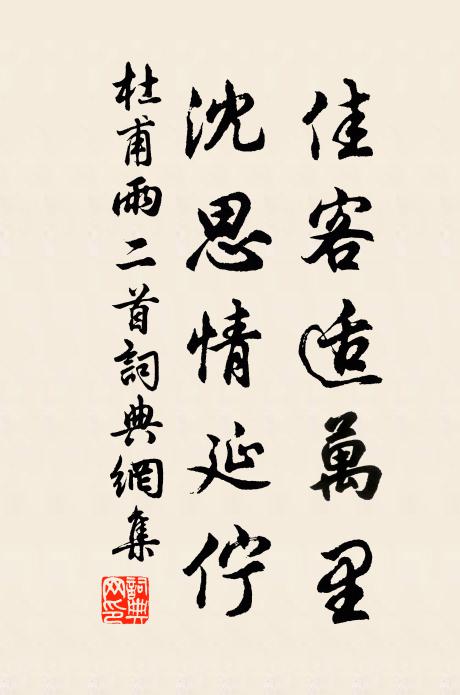 佳客适萬里
沈思情延佇
杜甫雨二首詞典網集
詞典網印